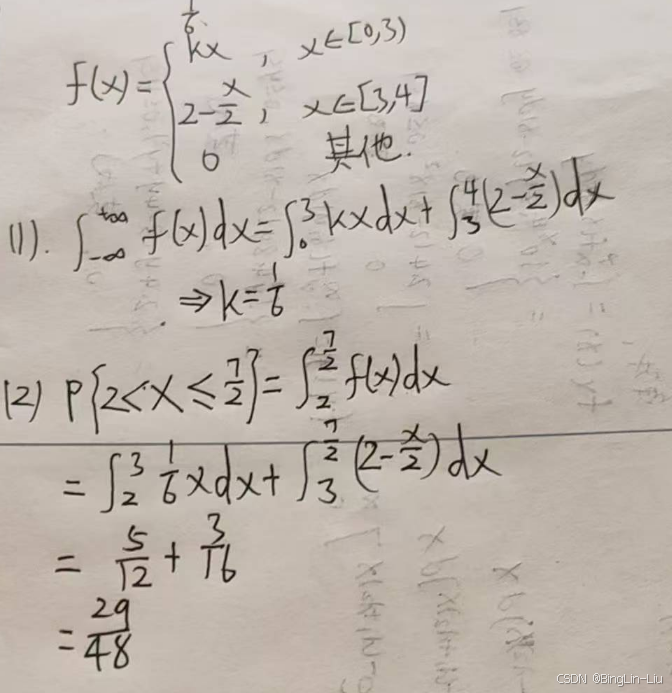 1/6
f(x) = { kx , x∈[0,3)
2-x/2 , x∈[3,4]
0 其他.
(1). ∫_{-∞}^{+∞} f(x)dx = ∫_0^3 kxdx + ∫_3^4 (2-x/2)dx
⇒ k = 1/6
(2) P{2<X≤7/2} = ∫_2^{7/2} f(x)dx
= ∫_2^3 1/6 xdx + ∫_3^{7/2} (2-x/2)dx
= 5/12 + 3/16
= 29/48
CSDN @BingLin-Liu